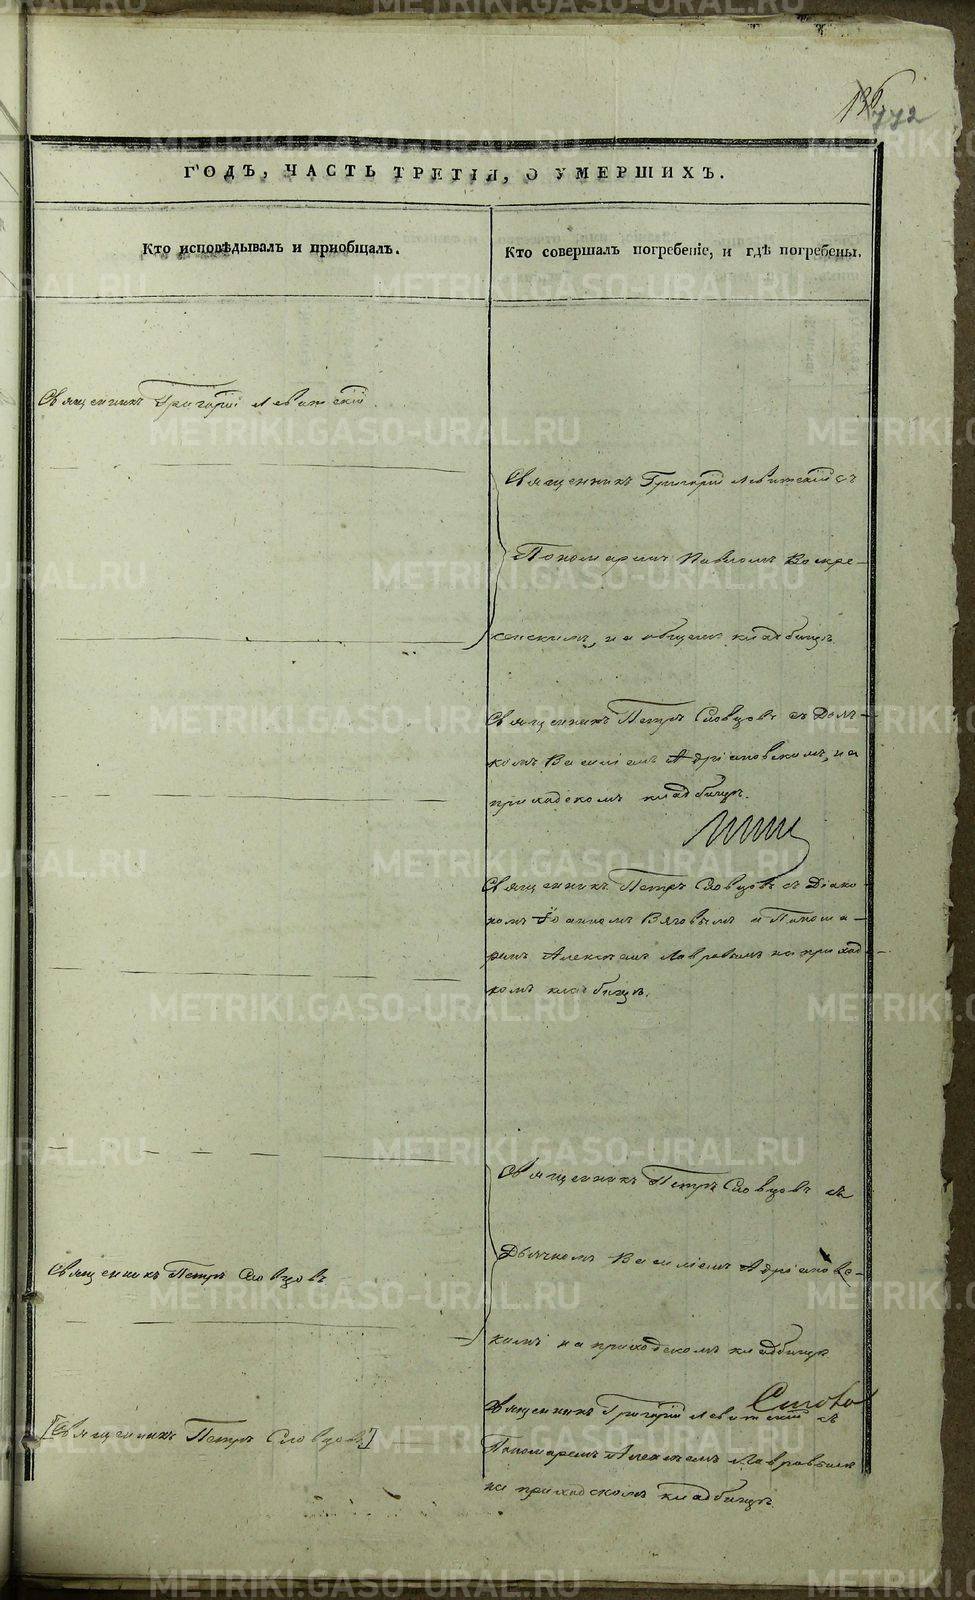 772
ГОДЪ, ЧАСТЬ ТРЕТІЯ, О УМЕРШИХЪ.
Кто исповѣдывалъ и пріобщалъ.
Кто совершалъ погребеніе, и гдѣ погребены.
Священникъ Григорій Левитскій.
Священникъ Григорій Левитскій съ
Пономаремъ Павломъ Воскре-
сенскимъ, на общемъ кладбищѣ.
Священникъ Петръ Словцовъ съ Дьяч-
комъ Василіемъ Адріановскимъ, на
приходскомъ кладбищѣ.
Священникъ Петръ Словцовъ съ Діако-
номъ Іоанномъ Вяговымъ и Понома-
ремъ Алексѣемъ Лавровымъ на приход-
комъ кладбищѣ.
Священникъ Петръ Словцовъ съ
Дьячкомъ Василіемъ Адріановс-
кимъ на приходскомъ кладбищѣ
Священникъ Петръ Словцовъ
[Священникъ Петръ Словцовъ]
Священникъ Григорій Левитскій съ
Пономаремъ Алексѣемъ Лавровымъ
на приходскомъ кладбищѣ.
METRIKI.GASO-URAL.RU